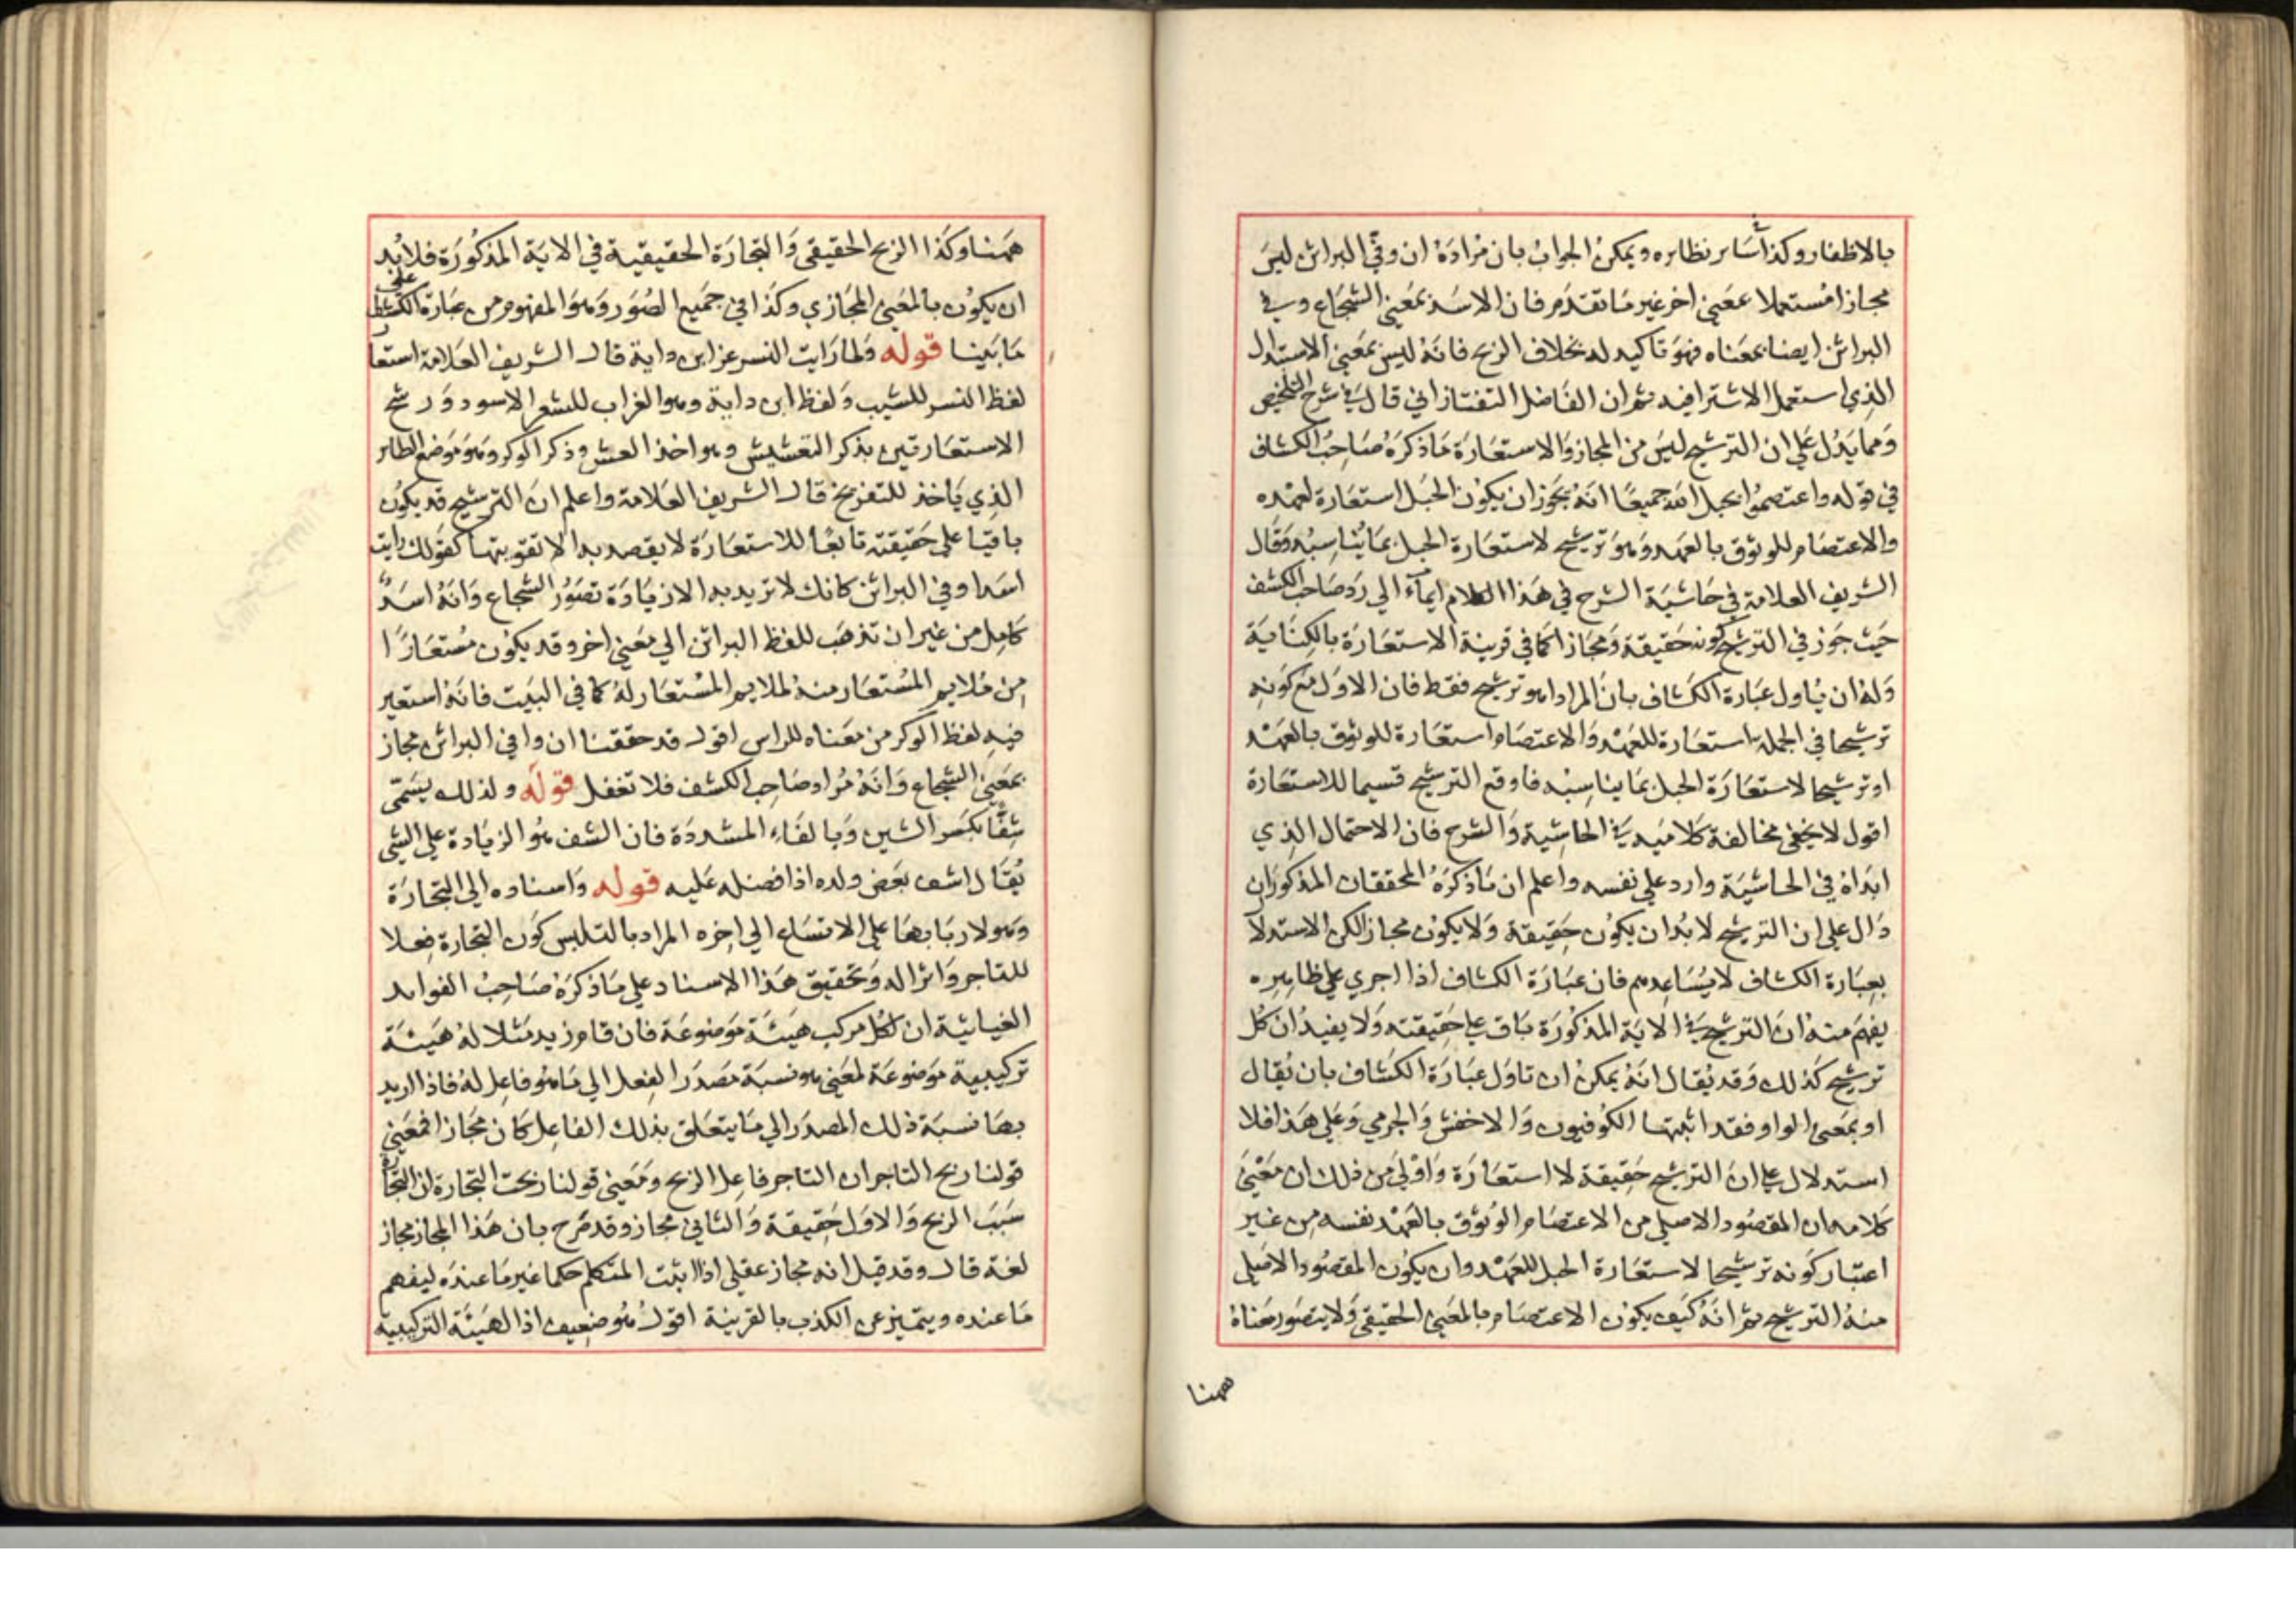 بالاظفار وكذا سائر نظايره ويمكن الجواب بان مراده ان وفي البراثن ليس
مجازا مستعملا بمعني اخر غير ما تقدم فان الاسد بمعني الشجاع وفي
البراثن ايضا بمعناه فهو تاكيد له بخلاف الربح فانه ليس بمعني الاستبدال
الذي استعمل الاشترا فيه ثم ان الفاضل التفتازاني قال في شرح التلخيص
ومما يدل علي ان الترشيح ليس من المجاز والاستعارة ما ذكره صاحب الكشاف
في قوله واعتصموا بحبل الله جميعًا انه يجوز ان يكون الحبل استعارة لعهده
والاعتصام للوثوق بالعهد وهو ترشيح لاستعارة الحبل بما يناسبه وقال
الشريف العلامة في حاشية الشرح في هذا الكلام ايماء الي رد صاحب الكشف
حيث جوز في الترشيح كونه حقيقة ومجازا كما في قرينة الاستعارة بالكناية
وله ان ياول عبارة الكشاف بان المراد اهو ترشيح فقط فان الاول مع كونه
ترشيحا في الجملة استعارة للعهد والاعتصام استعارة للوثوق بالعهد
او ترشيحا لاستعارة الحبل بما يناسبه فاوقع الترشيح قسيما للاستعارة
اقول لا يخفي مخالفة كلاميه في الحاشية والشرح فان الاحتمال الذي
ابداه في الحاشية وارد علي نفسه واعلم ان ما ذكره المحققان المذكوران
دال علي ان الترشيح لا بد ان يكون حقيقة ولا يكون مجازا لكن الاستدلال
بعبارة الكشاف لا يساعدهم فان عبارة الكشاف اذا اجري علي ظاهره
يفهم منه ان الترشيح في الاية المذكورة باق علي حقيقته ولا يفيد ان كل
ترشيح كذلك وقد يقال انه يمكن ان تاول عبارة الكشاف بان يقال
او بمعني الواو فقد اثبتها الكوفيون والاخفش والجرمي وعلي هذا فلا
استدلال علي ان الترشيح حقيقة لا استعارة واولي من ذلك ان معني
كلامه ان المقصود الاصلي من الاعتصام الوثوق بالعهد نفسه من غير
اعتبار كونه ترشيحا لاستعارة الحبل للعهد وان يكون المقصود الاصلي
منه الترشيح ثم انه كيف يكون الاعتصام بالمعني الحقيقي ولا يتصور معناه
ههنا
ههنا وكذا الربح الحقيقي والتجارة الحقيقية في الاية المذكورة فلا بد
ان يكون بالمعني المجازي وكذا في جميع الصور وهو المفهوم من عبارة الكشاف علي
ما بينا قوله ولما رايت النسر عز ابن داية قال الشريف العلامة استعار
لفظ النسر للشيب ولفظ ابن داية وهو الغراب للشعر الاسود ورشح
الاستعارتين بذكر التعشيش وهو اخذ العش وذكر الوكر وهو موضع الطاير
الذي ياخذ للتفريخ قال الشريف العلامة واعلم ان الترشيح قد يكون
باقيا علي حقيقته تابعًا للاستعارة لا يقصد به الا تقويتها كقولك رايت
اسدا وفي البراثن كانك لا تريد به الا زيادة تصور الشجاع وانه اسد
كامل من غير ان تذهب للفظ البراثن الي معني اخر وقد يكون مستعارًا
من ملايم المستعار منه لملايم المستعار له كما في البيت فانه استعير
فيه لفظ الوكر من معناه للراس اقول قد حققنا ان وافي البراثن مجاز
بمعني الشجاع وانه مراد صاحب الكشف فلا تغفل قوله ولذلك يسمي
شفًا بكسر الشين وبالفاء المشددة فان الشف هو الزيادة علي الشي
يقال اشف بعض ولده اذا فضله عليه قوله واسناده الي التجارة
وهو لاربابها علي الاتساع الي اخره المراد بالتلبس كون التجارة فعلا
للتاجر واثرا له وتحقيق هذا الاسناد علي ما ذكره صاحب الفوايد
الغياثية ان لكل مركب هيئة موضوعة فان قام زيد مثلا له هيئة
تركيبية موضوعة لمعني هو نسبة مصدر الفعل الي ما هو فاعل له فاذا اريد
بها نسبة ذلك المصدر الي ما يتعلق بذلك الفاعل كان مجازا فمعني
قولنا ربح التاجر ان التاجر فاعل الربح ومعني قولنا ربحت التجارة ان التجارة
سبب الربح والاول حقيقة والثاني مجاز وقد صرح بان هذا المجاز مجاز
لغة قال وقد قيل انه مجاز عقلي اذا اثبت المتكلم حكما غير ما عنده ليفهم
ما عنده ويتميز عن الكذب بالقرينة اقول هو ضعيف اذ الهيئة التركيبية